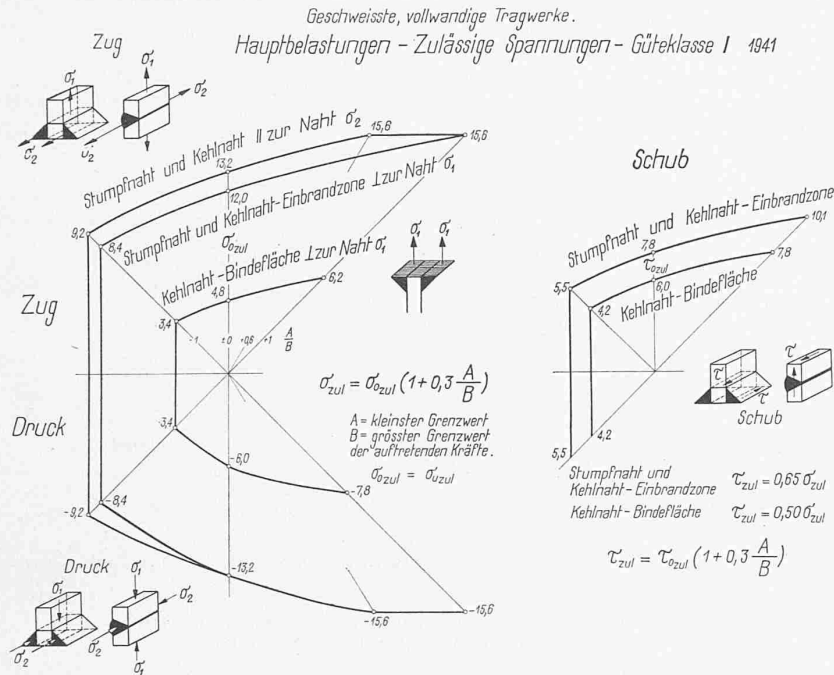 Geschweisste, vollwandige Tragwerke.
Hauptbelastungen – Zulässige Spannungen – Güteklasse I 1941
Zug
σ₁
σ₁
σ₂
σ₂
σ₂
Stumpfnaht und Kehlnaht II zur Naht σ₂
15,6
15,6
13,2
Stumpfnaht und Kehlnaht-Einbrandzone ⊥ zur Naht σ₁
12,0
9,2
8,4
σ₀zul
Kehlnaht-Bindefläche ⊥ zur Naht σ₁
6,2
4,8
3,4
σ₁ σ₁
Zug
-1 ±0 +0,6 +1 A/B
σzul = σ₀zul (1 + 0,3 A/B)
A = kleinster Grenzwert
B = grösster Grenzwert
der auftretenden Kräfte.
σ₀zul = σuzul
Druck
-3,4
-6,0
-7,8
-8,4
-9,2
-13,2
-15,6
-15,6
Druck
σ₁
σ₁
σ₂
σ₂
σ₂
σ₁
Schub
Stumpfnaht und Kehlnaht-Einbrandzone
10,1
7,8
7,8
τ₀zul
6,0
Kehlnaht-Bindefläche
5,5
4,2
4,2
5,5
τ
τ
τ
Schub
Stumpfnaht und
Kehlnaht-Einbrandzone τzul = 0,65 σzul
Kehlnaht-Bindefläche τzul = 0,50 σzul
τzul = τ₀zul (1 + 0,3 A/B)